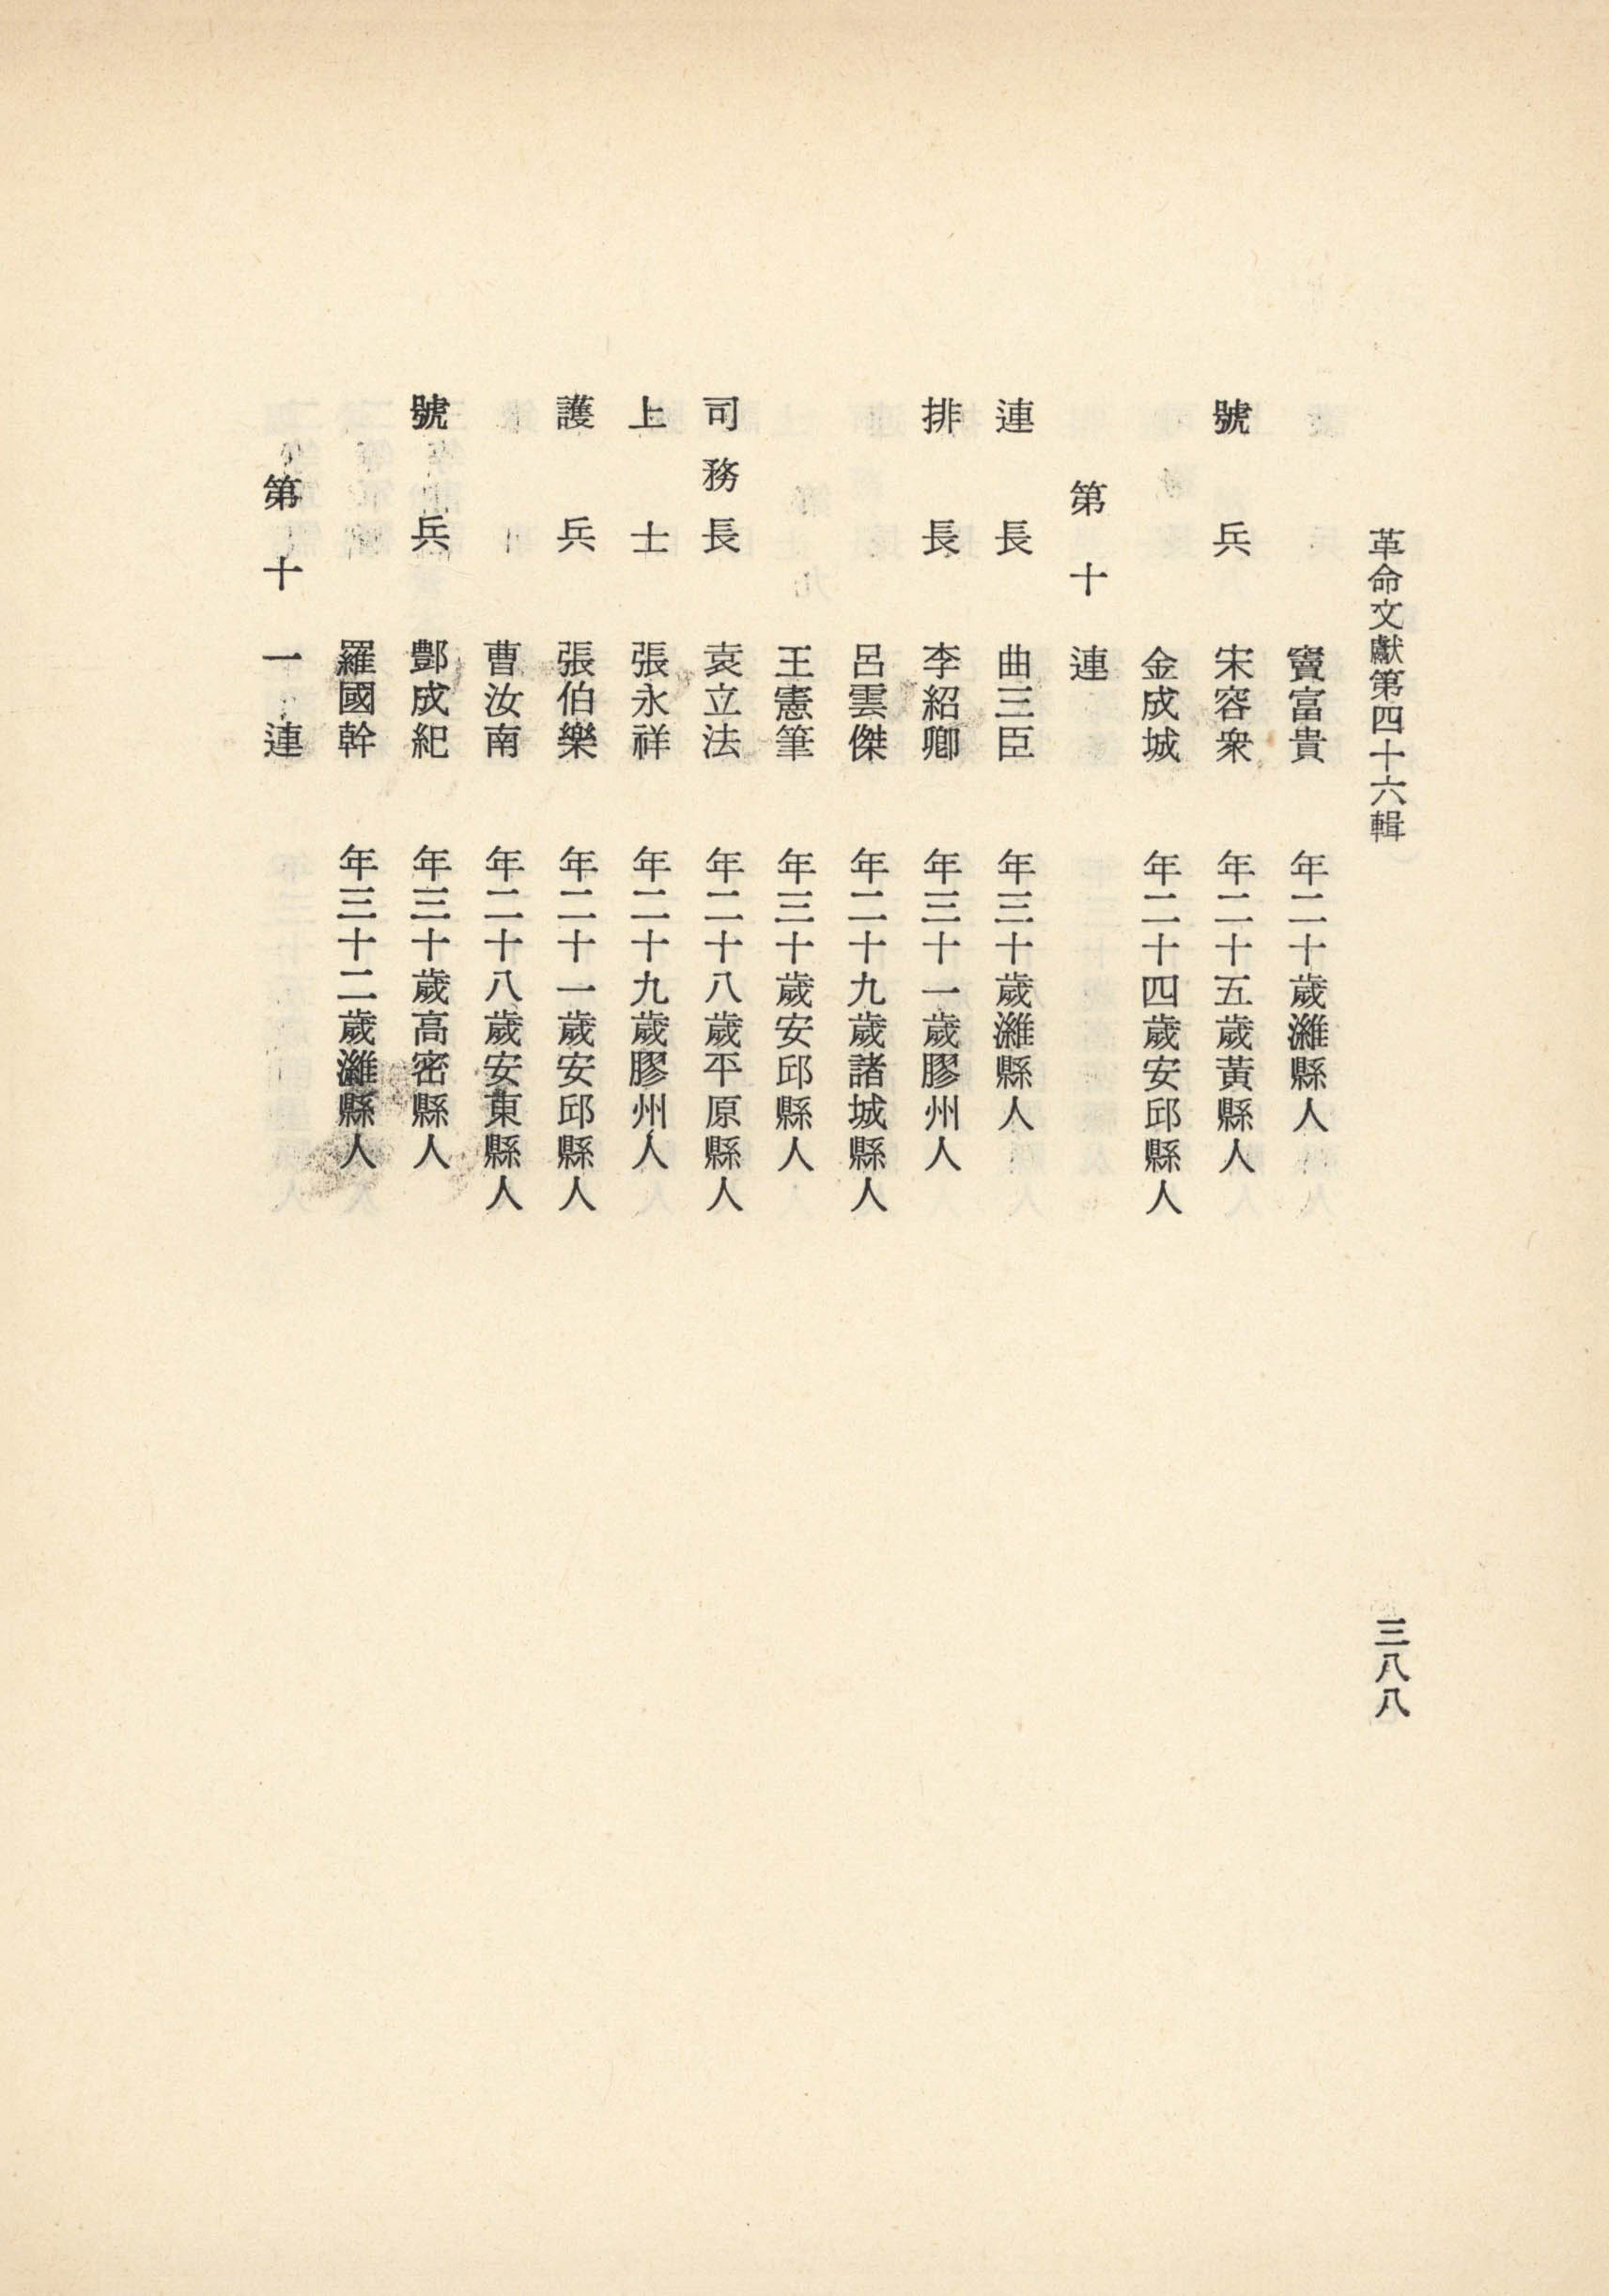 革命文獻第四十六輯
三八八
竇富貴 年二十歲濰縣人
號兵 宋容衆 年二十五歲黃縣人
金成城 年二十四歲安邱縣人
第十連
連長 曲三臣 年三十歲濰縣人
排長 李紹卿 年三十一歲膠州人
呂雲傑 年二十九歲諸城縣人
王憲筆 年三十歲安邱縣人
司務長 袁立法 年二十八歲平原縣人
上士 張永祥 年二十九歲膠州人
護兵 張伯樂 年二十一歲安邱縣人
曹汝南 年二十八歲安東縣人
號兵 酆成紀 年三十歲高密縣人
羅國幹 年三十二歲濰縣人
第十一連